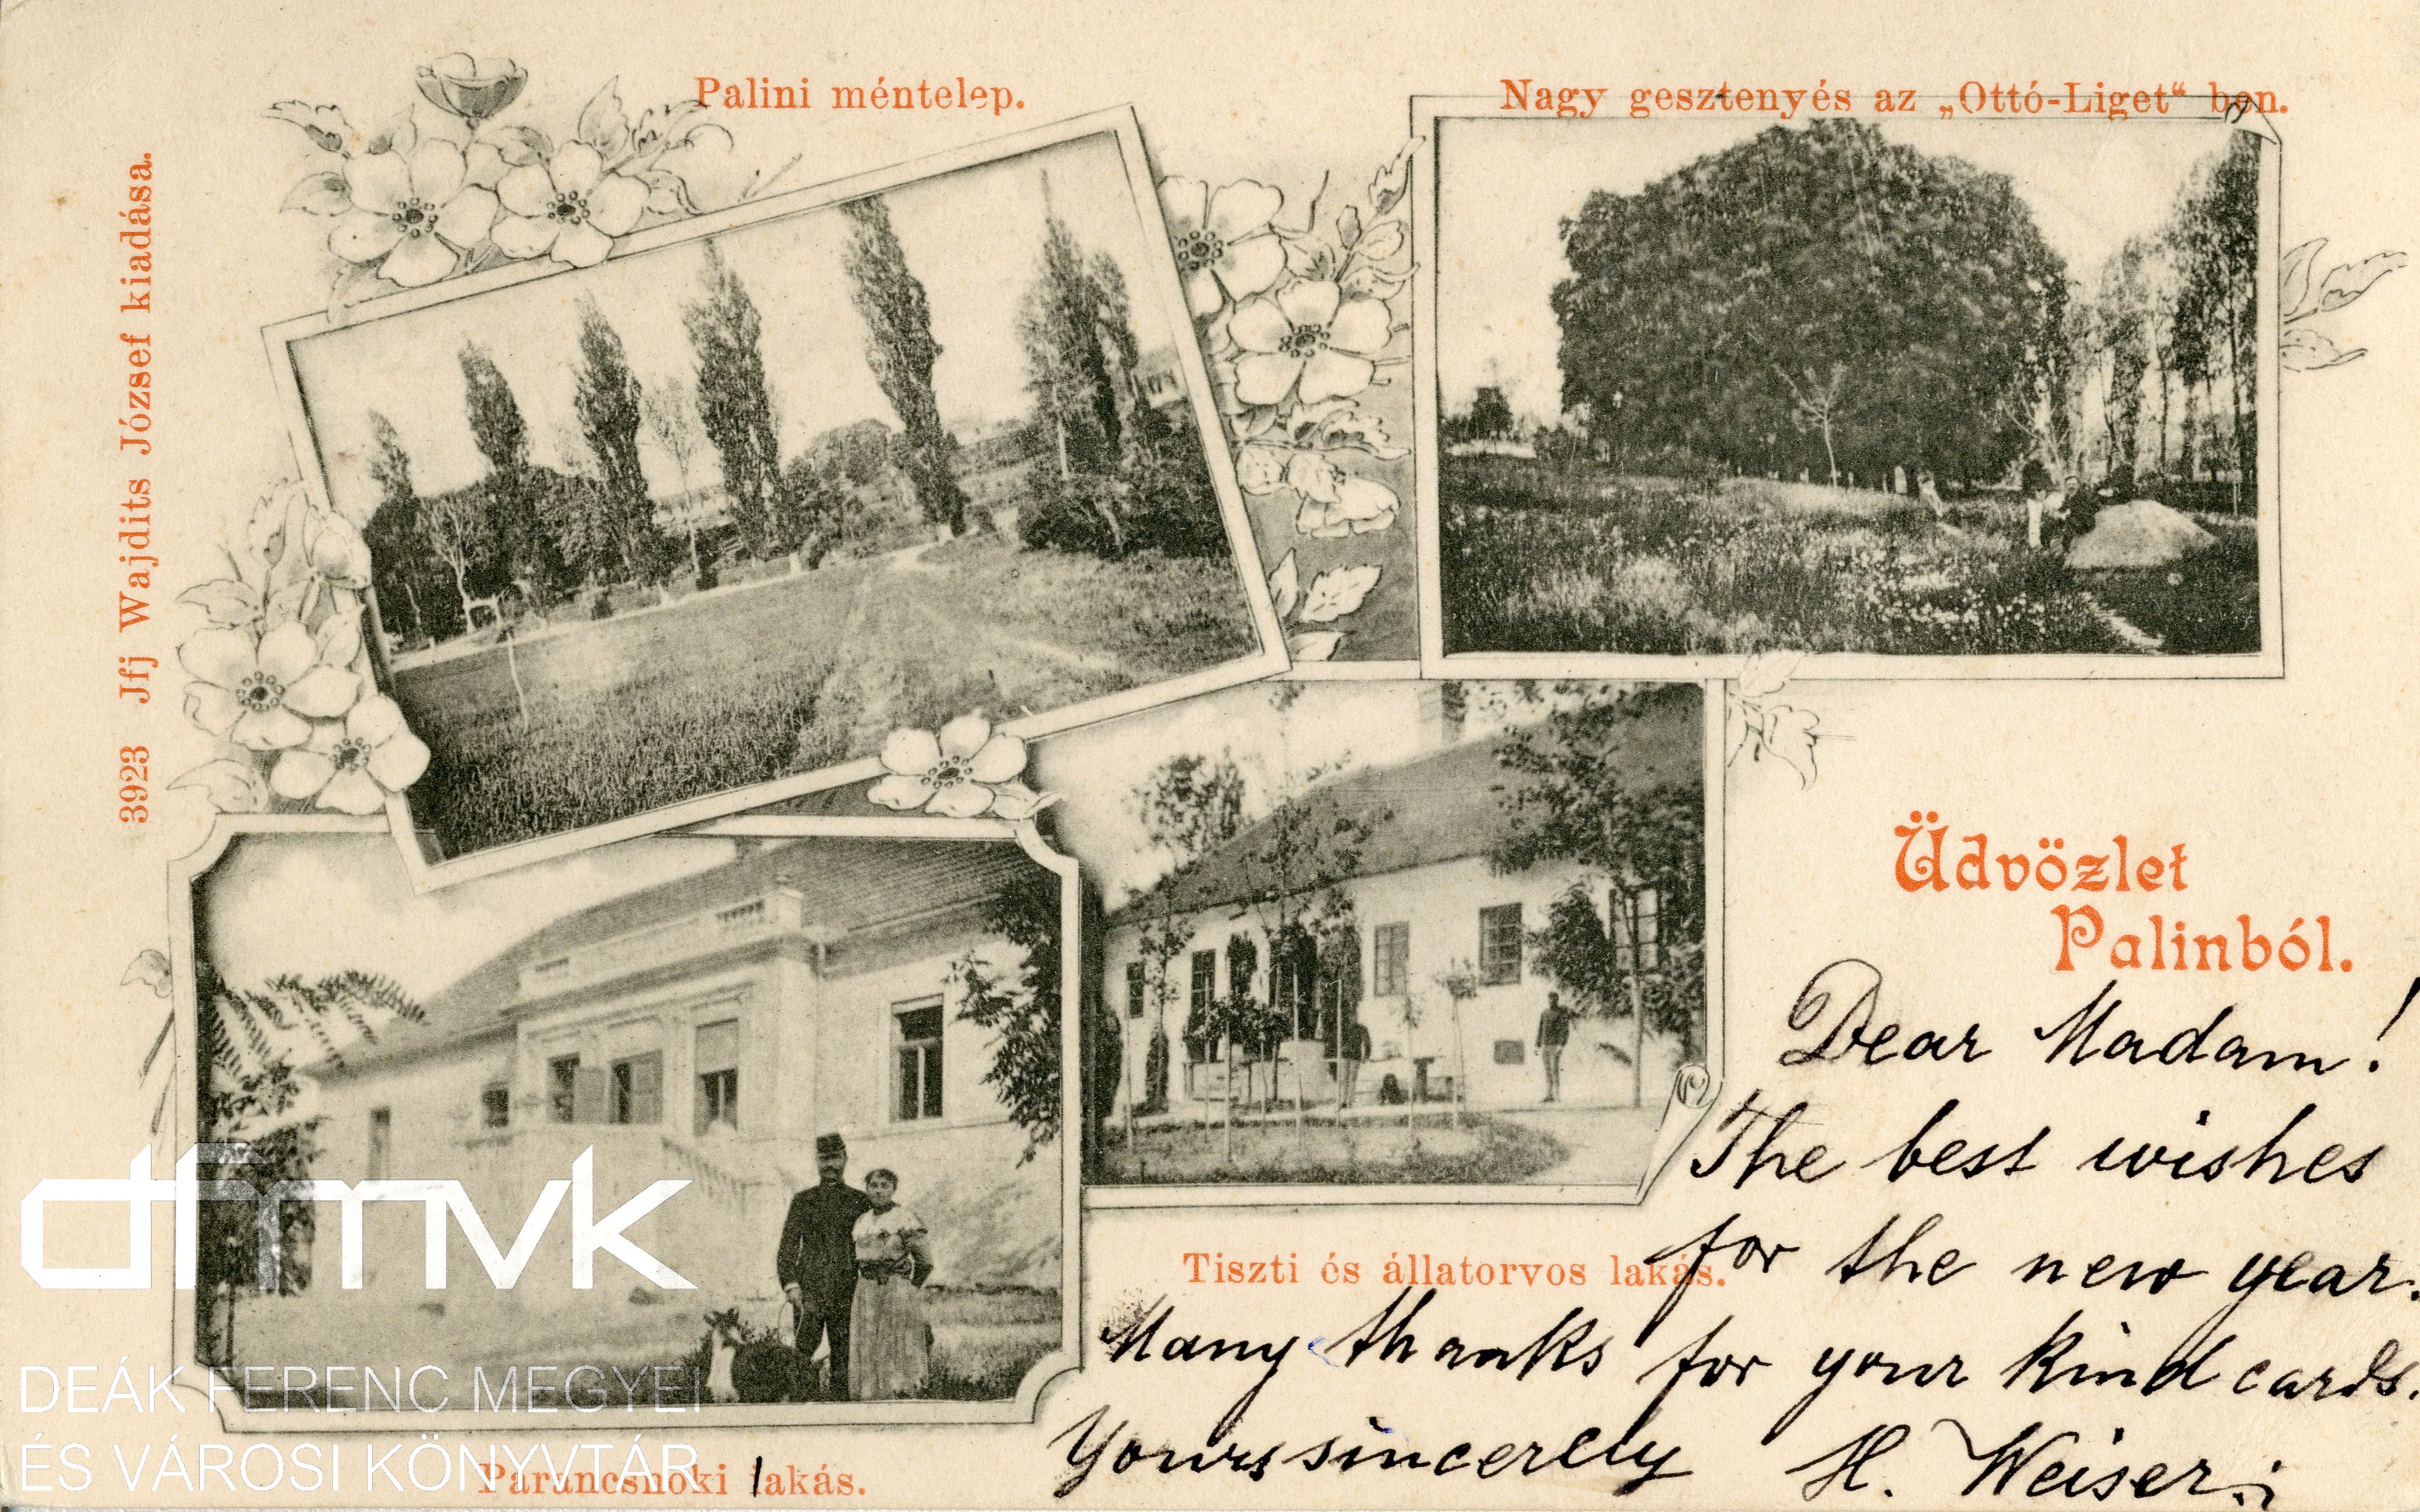 Palini méntelep.
Nagy gesztenyés az „Ottó-Liget“ ben.
3923 Jfj Wajdits József kiadása.
Üdvözlet
Palinból.
Dear Madam!
The best wishes
for the new year.
Tiszti és állatorvos lakás.
Many thanks for your kind cards.
Yours sincerely H. Weiser
Parancsnoki lakás.
dfmvk
DEÁK FERENC MEGYEI
ÉS VÁROSI KÖNYVTÁR